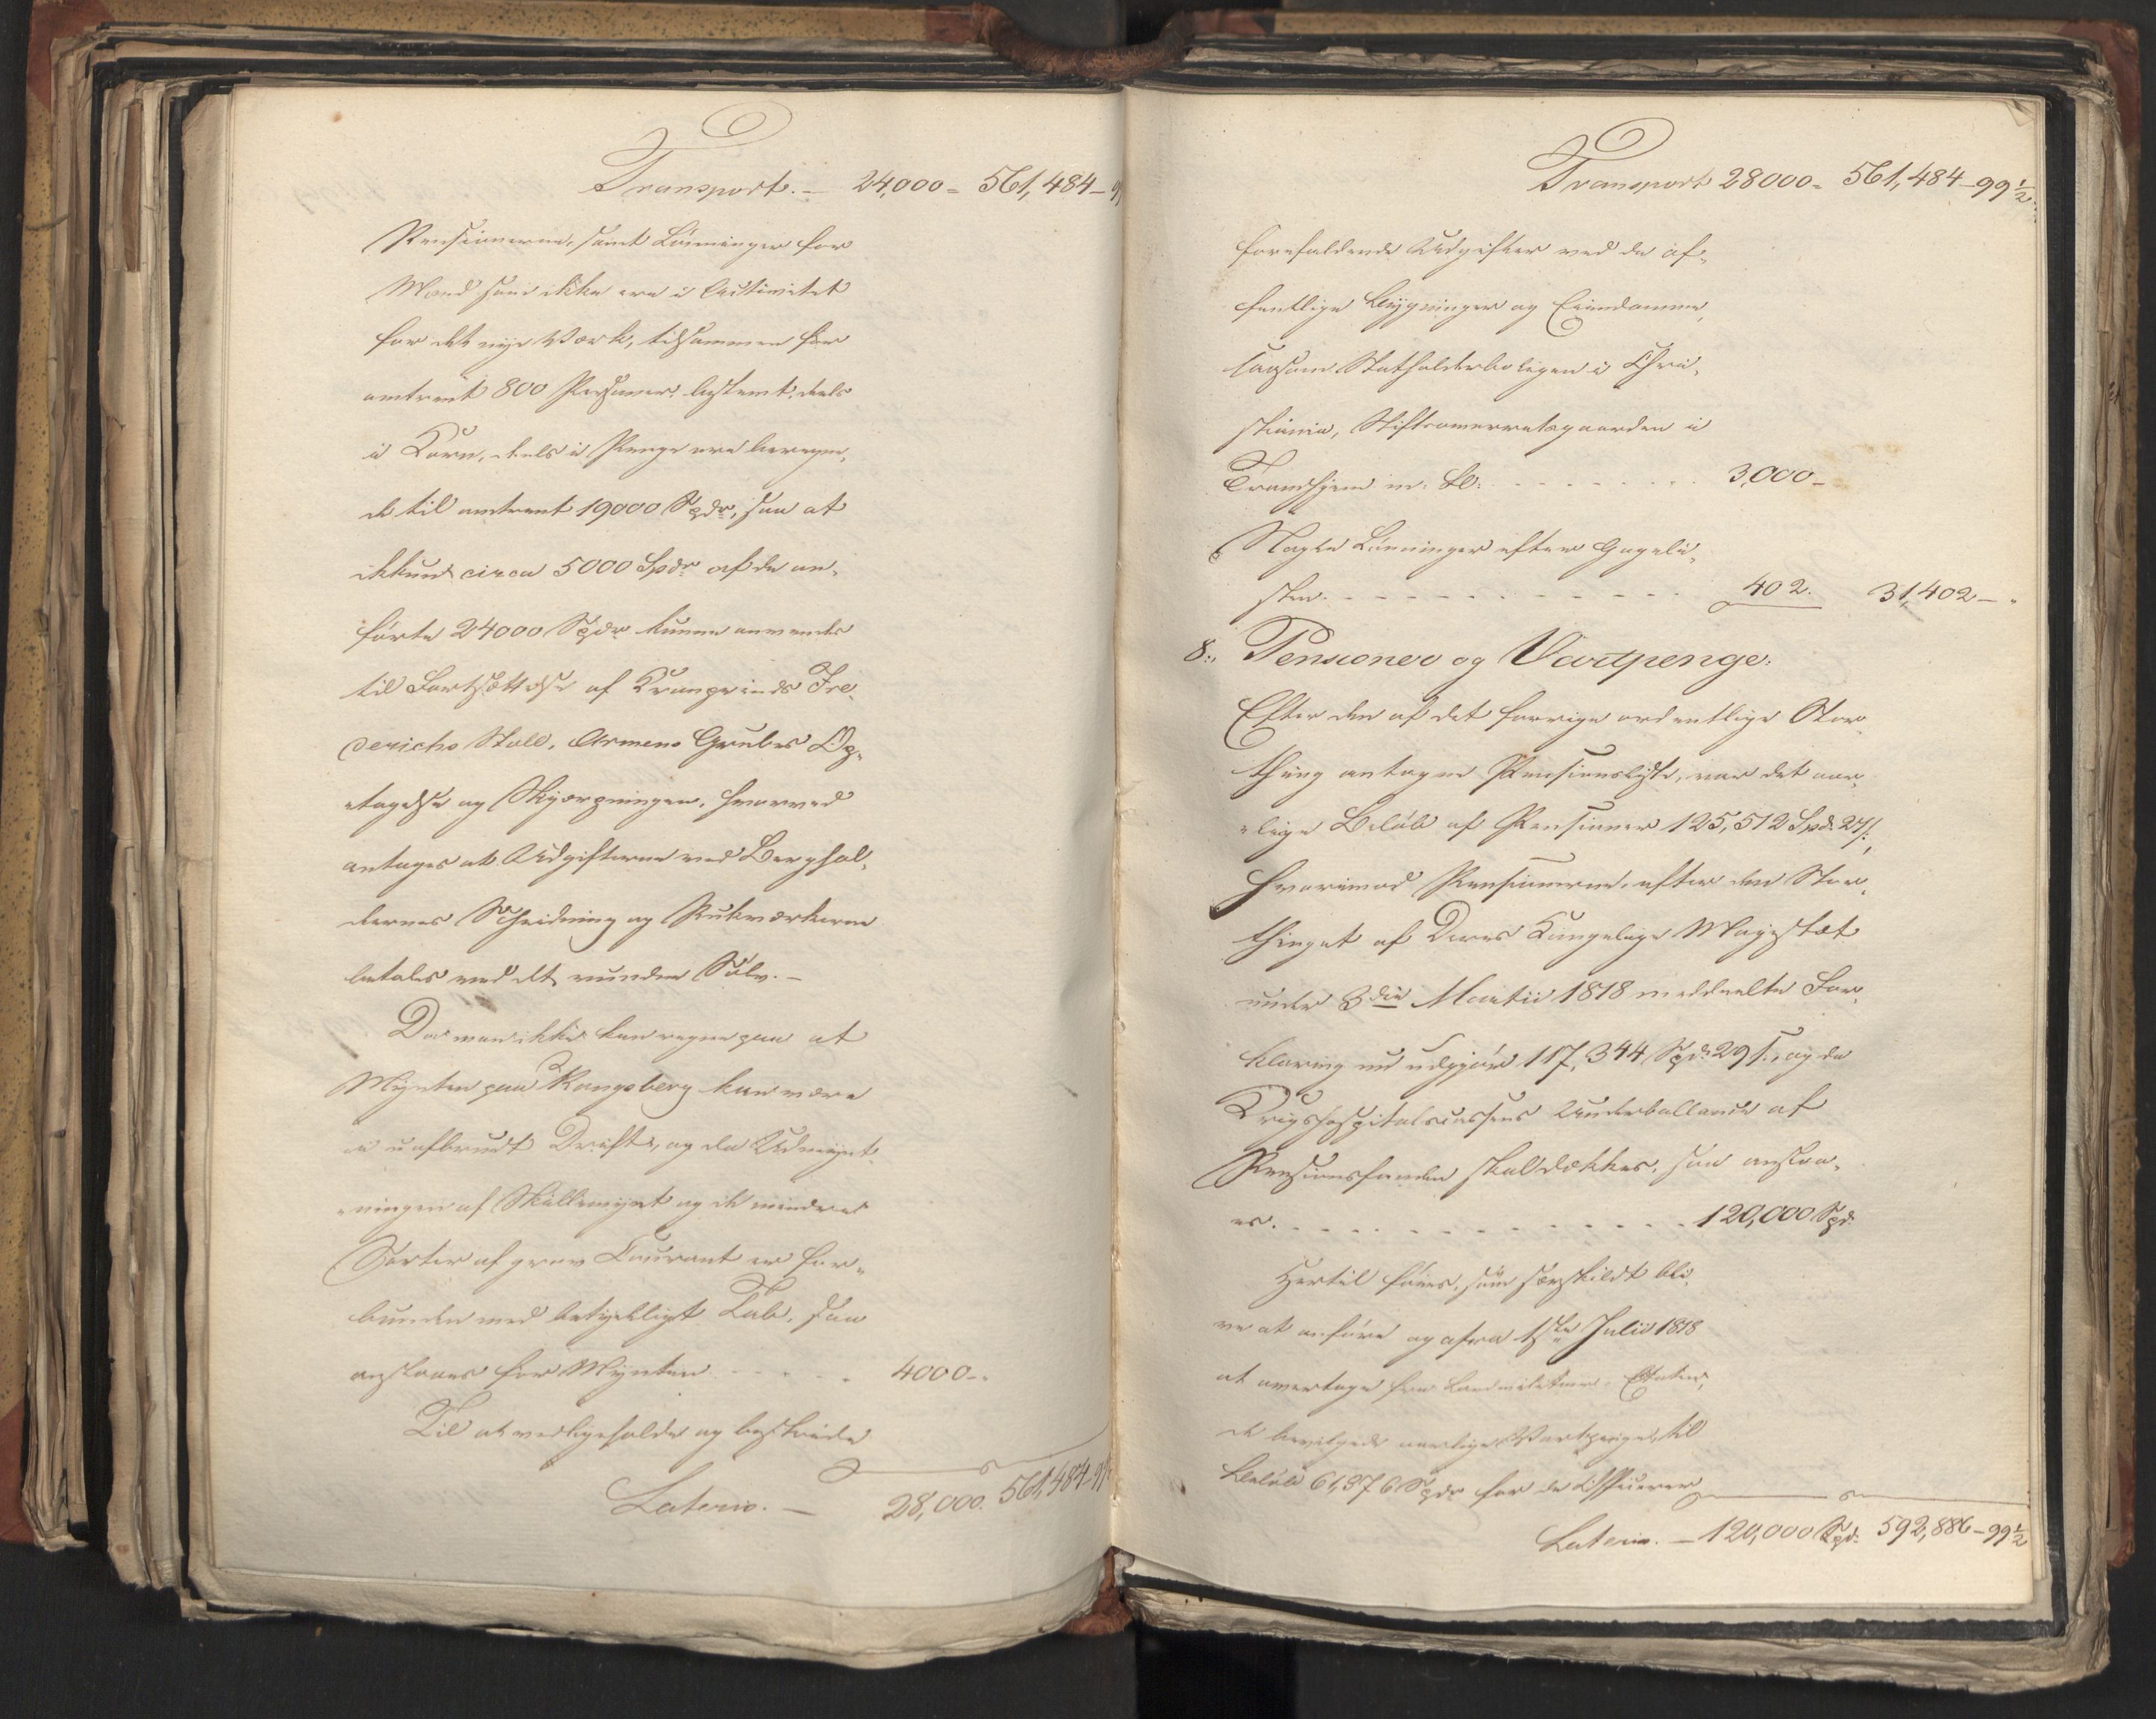 Transport. – 24,000 = 561,484 – 9
Pensionerne, samt Lönninger for
Mænd som ikke ere i Activitet
for det nye Værk, tilsammen for
omtrent 800 Personer, bestemt, deels
i Korn, deels i Penge ere beregne„
de til omtrent 19000 Spdr, saa at
ikkun circa 5000 Spdr af de an„
förte 24000 Spdr kunne anvendes
til Fortsættelse af Kronprinds Fre„
derichs Stoll, Armens Grubes Op„
tagelse og Skjærpninger, hvorved
antages at Udgifterne ved Berghal„
dernes Scheidning og Pukværkerne
betales med det vundne Sölv. –
Da man ikke kan regne paa at
Mynten paa Kongsberg kan være
i uafbrudt Drift, og da Udmynt„
„ningen af Skillemynt og de mindre
Sorter af grov Courant er for„
bunden med betydeligt Tab, saa
anslaaes for Mynten 4000 –
Til at vedligeholde og bestride
Lateris. – 28,000. 561,484 – 9
Transport 28000 = 561,484 – 99½
forefaldende Udgifter ved de of„
fentlige Bygninger og Eiendomme,
saasom Statholderboligen i Chri„
stiania, Stiftsamtsgaarden i
Trondhjem m: fl: 3,000 –
Nogle Lönninger efter Gageli„
sten 402. 31,402 –
8., Pensioner og Vartpenge.
Efter den af det forrige ordentlige Stor„
thing antagne Pensionsliste, var det aar„
„lige Belöb af Pensioner 125,512 Spd. 27 s,
hvorimod Pensionerne, efter den Stor„
thinget af Deres Kongelige Majestæt
under 3die Martii 1818 meddeelte For„
klaring nu udgjör 117,344 Spd. 29 s., og da
Krigshospitalscassens Underballance af
Pensionsfonden skal dækkes, saa anslaa„
es. 120,000 Spd.
Hertil föies, som særskildt bli„
ve at anföre og fra 1ste Julii 1818
at overtage fra Landmilitær-Etaten,
de bevilgede aarlige Vartpenge, til
Belöb 61,876 Spdr for de Officierer
Lateris. – 120,000 Spd: 592,886 – 99½